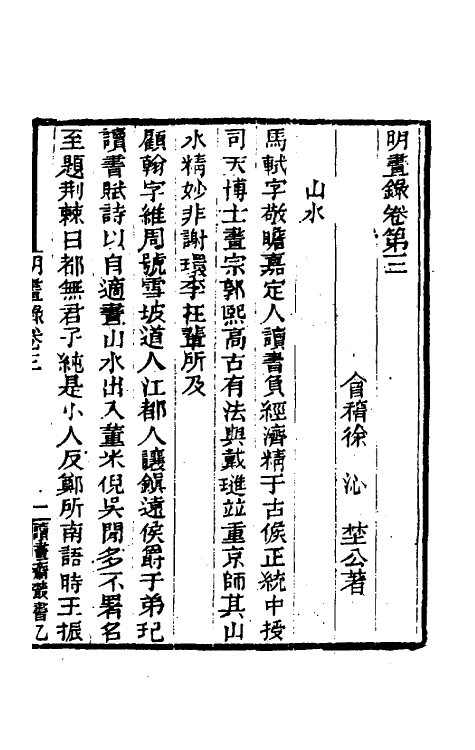 明畫錄卷第三
會稽徐沁埜公著
山水
馬軾字敬瞻嘉定人讀書負經濟精于古候正統中授
司天博士畫宗郭熙高古有法與戴璡並重京師其山
水精妙非謝環李在輩所及
顧翰字維周號雪坡道人江都人讓鎮遠侯爵于弟玘
讀書賦詩以自適畫山水出入董米倪吳閒多不署名
至題荆棘曰都無君子純是小人反鄭所南語時王振
明畫錄卷三
一
讀畫齋叢書乙